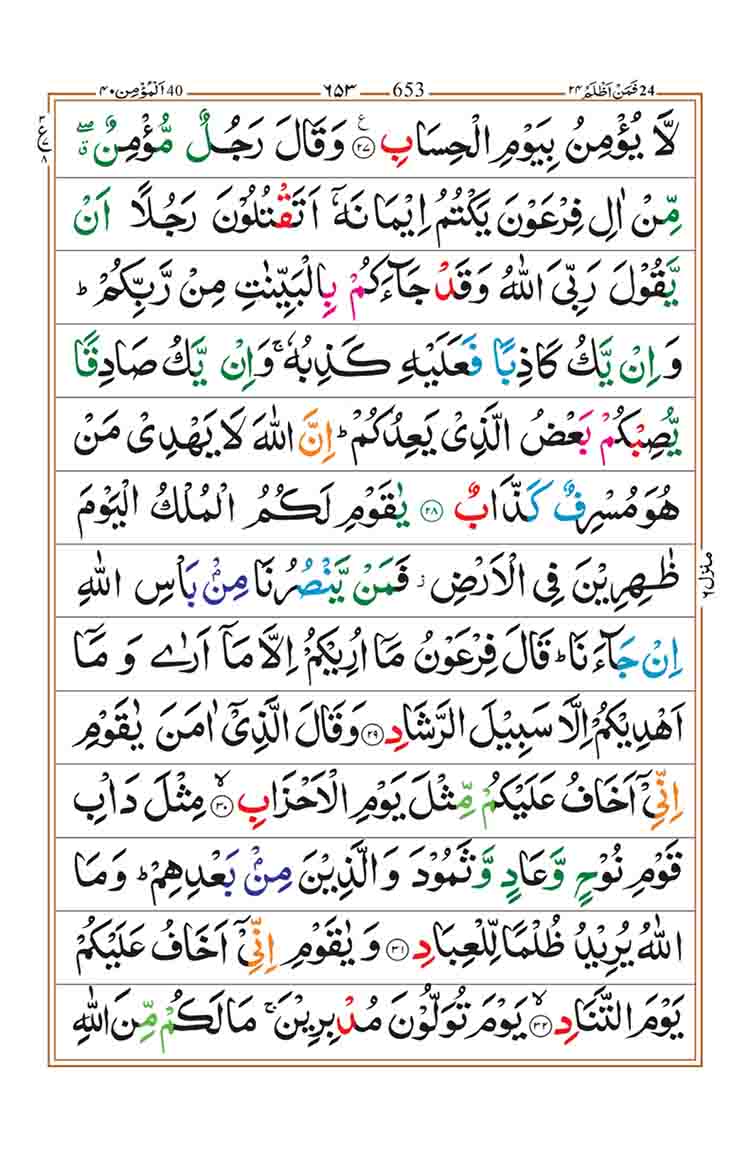 40 اَلْمُؤْمِن ۴۰ 653 ۶۵۳ 24 فَمَنْ اَظْلَمُ ۲۴
لَّا يُؤْمِنُ بِيَوْمِ الْحِسَابِ ۲۷ ع وَقَالَ رَجُلٌ مُّؤْمِنٌ ۖق
مِّنْ اٰلِ فِرْعَوْنَ يَكْتُمُ اِيْمَانَهٗۤ اَتَقْتُلُوْنَ رَجُلًا اَنْ
يَّقُوْلَ رَبِّىَ اللّٰهُ وَقَدْ جَآءَكُمْ بِالْبَيِّنٰتِ مِنْ رَّبِّكُمْ ؕ
وَ اِنْ يَّكُ كَاذِبًا فَعَلَيْهِ كَذِبُهٗ ۚ وَاِنْ يَّكُ صَادِقًا
يُّصِبْكُمْ بَعْضُ الَّذِىْ يَعِدُكُمْ ؕ اِنَّ اللّٰهَ لَا يَهْدِىْ مَنْ
هُوَ مُسْرِفٌ كَذَّابٌ ۲۸ يٰقَوْمِ لَكُمُ الْمُلْكُ الْيَوْمَ
ظٰهِرِيْنَ فِى الْاَرْضِ ز فَمَنْ يَّنْصُرُنَا مِنْۢ بَاْسِ اللّٰهِ
اِنْ جَآءَنَا ؕ قَالَ فِرْعَوْنُ مَاۤ اُرِيْكُمْ اِلَّا مَاۤ اَرٰى وَ مَاۤ
اَهْدِيْكُمْ اِلَّا سَبِيْلَ الرَّشَادِ ۲۹ وَقَالَ الَّذِىْۤ اٰمَنَ يٰقَوْمِ
اِنِّىْۤ اَخَافُ عَلَيْكُمْ مِّثْلَ يَوْمِ الْاَحْزَابِ ۳۰ ۙ مِثْلَ دَاْبِ
قَوْمِ نُوْحٍ وَّعَادٍ وَّثَمُوْدَ وَالَّذِيْنَ مِنْۢ بَعْدِهِمْ ؕ وَمَا
اللّٰهُ يُرِيْدُ ظُلْمًا لِّلْعِبَادِ ۳۱ وَ يٰقَوْمِ اِنِّىْۤ اَخَافُ عَلَيْكُمْ
يَوْمَ التَّنَادِ ۳۲ ۙ يَوْمَ تُوَلُّوْنَ مُدْبِرِيْنَ ۚ مَا لَكُمْ مِّنَ اللّٰهِ
منزل ۶
ع ۳ ۷ ۸